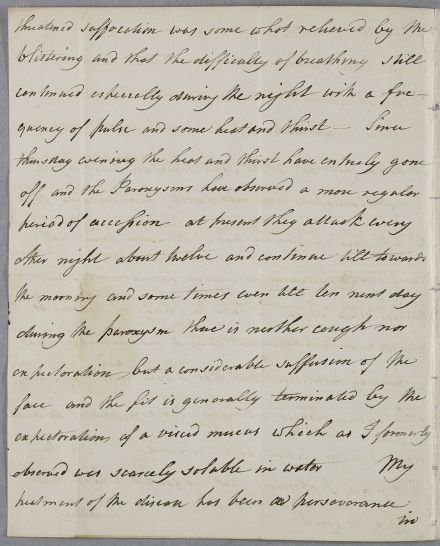 threatned suffocation was some what relieved by the
blistering and that the difficulty of breathing still
continued especially during the night with a fre-
quency of pulse and some heat and thirst — Since
thursday evening the heat and thirst have entirely gone
off and the Paroxysms have observed a more regular
period of accession at present they attack every
other night about twelve and continue till towards
the morning and some times even till ten next day
during the paroxysm there is neither cough nor
expectoration but a considerable suffusion of the
face and the fit is generally terminated by the
expectoration of a viscid mucus which as I formerly
observed was scarcely soluble in water My
treatment of the disease has been a perseverance
in